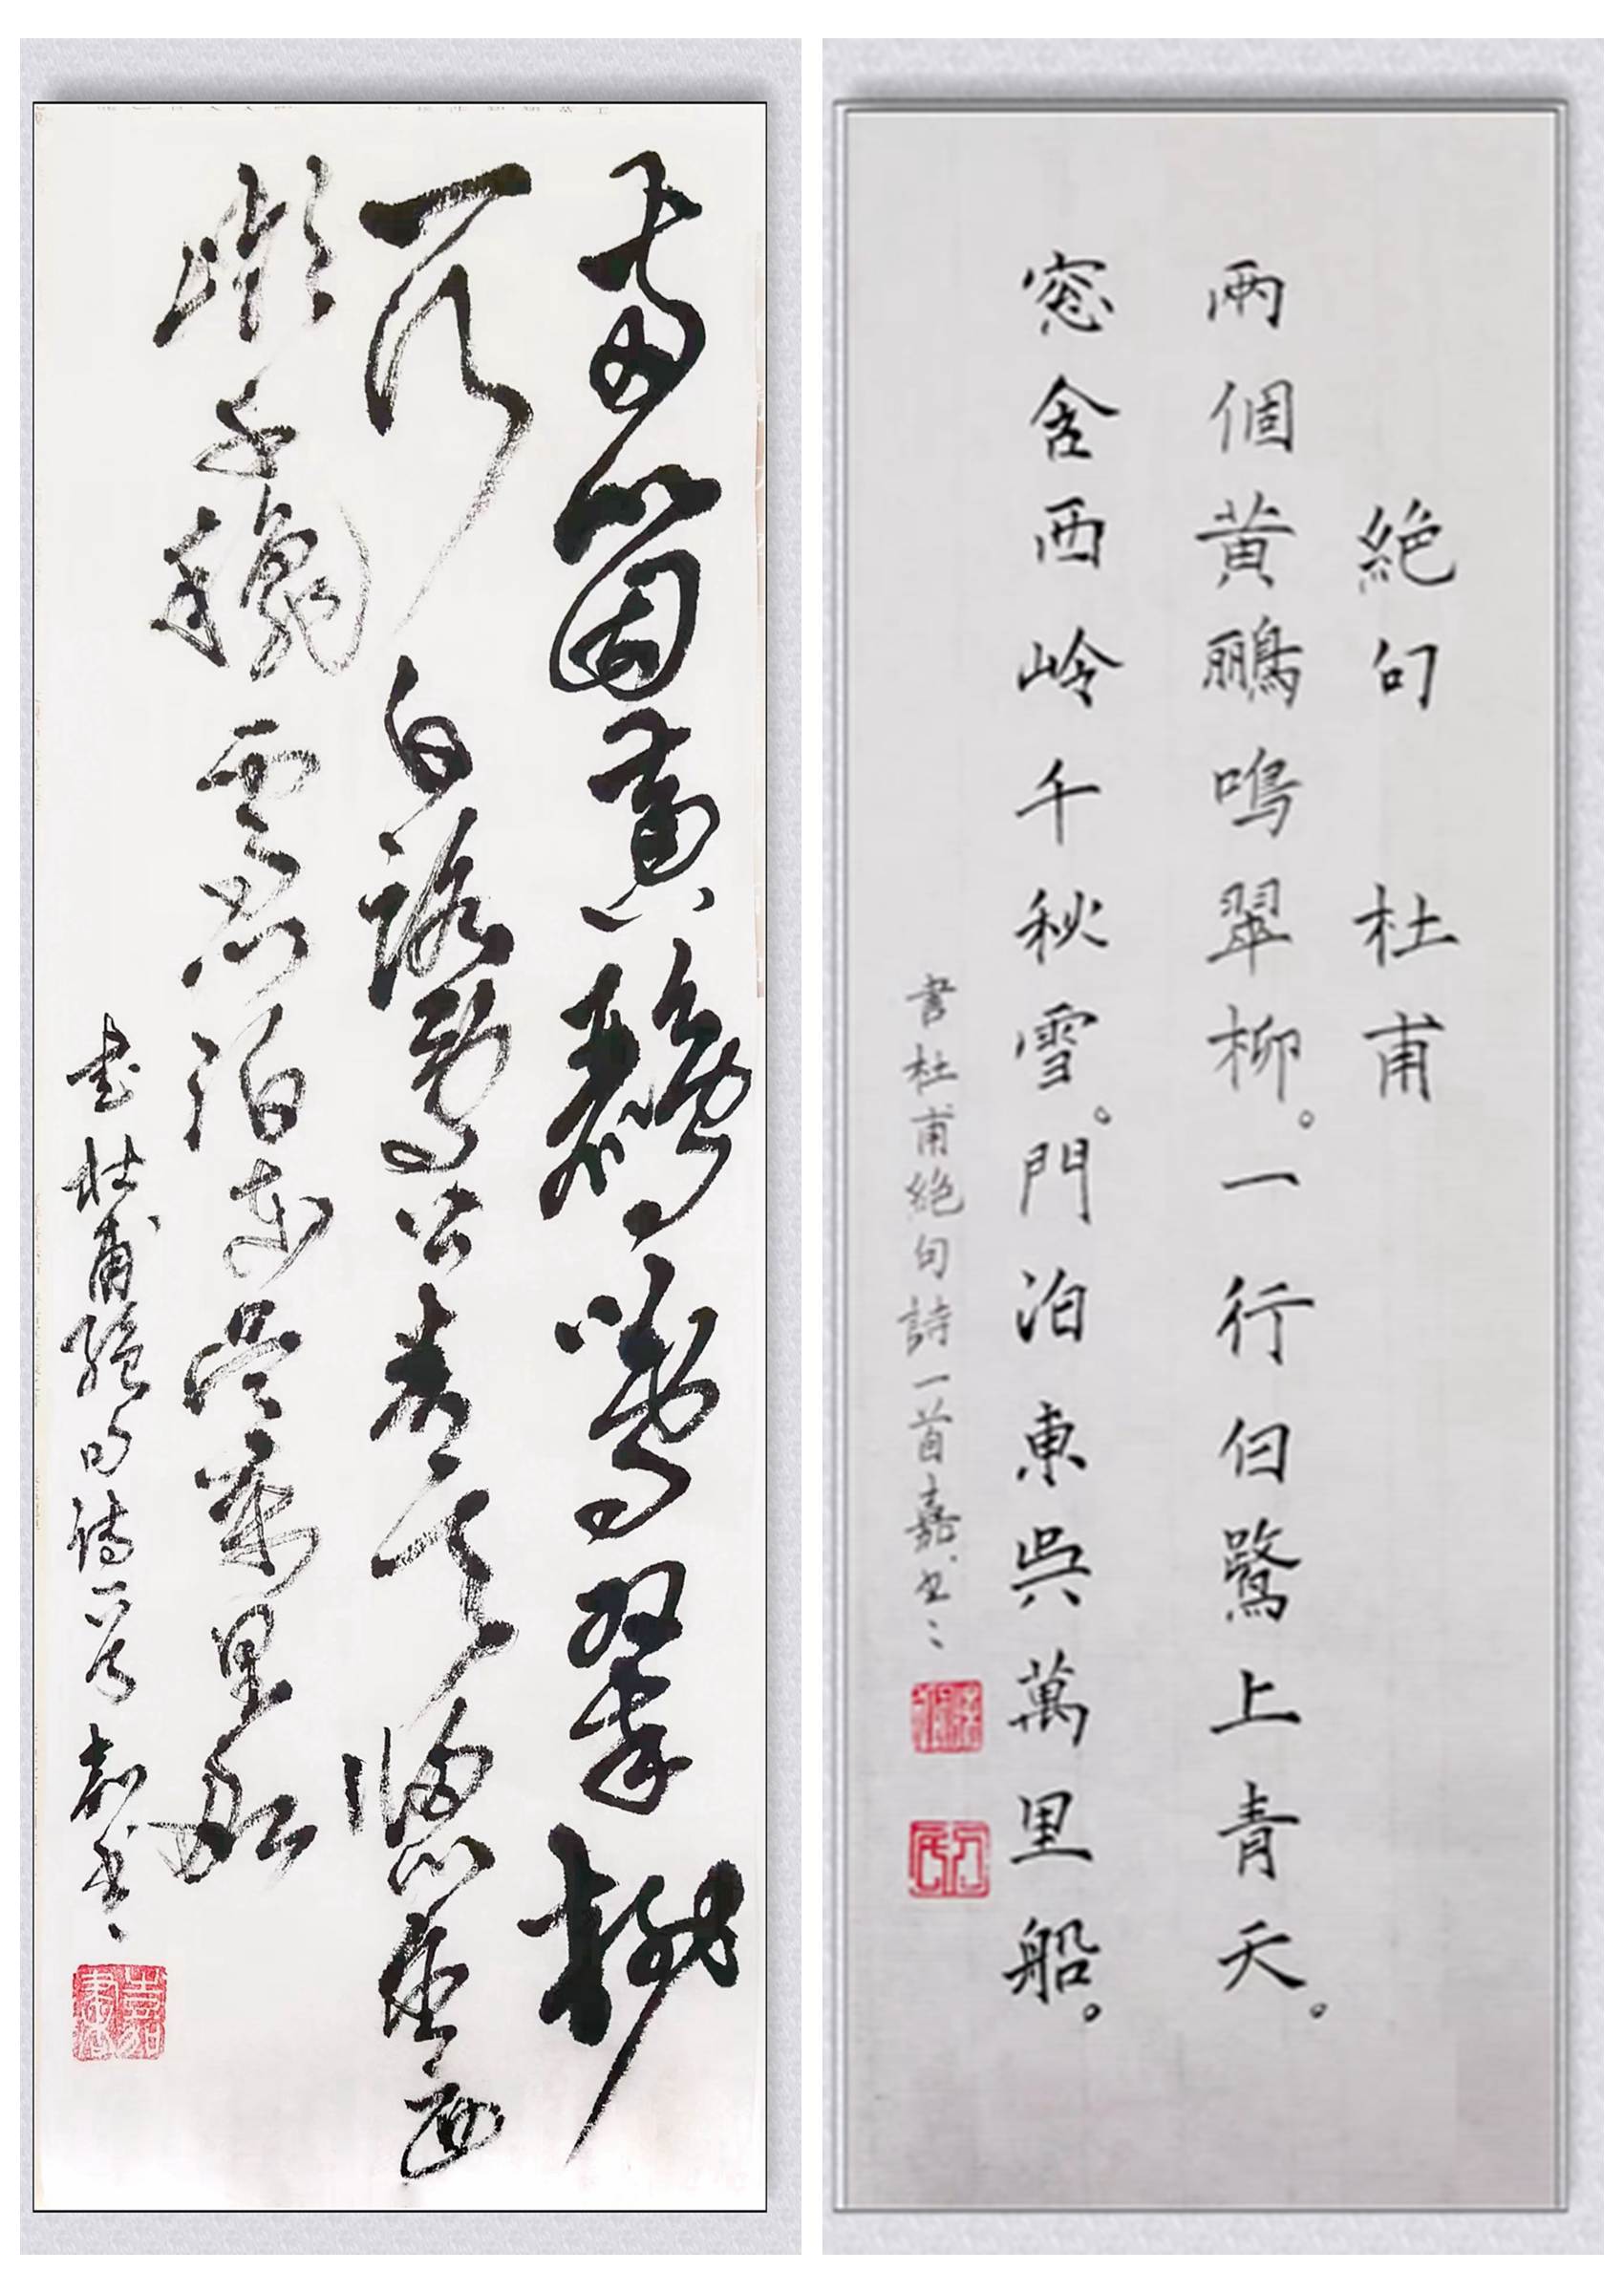 兩箇黃鸝鳴翠柳
一行白鷺上青天窓含西
嶺千秋雪門泊東吳萬里船
書杜甫絕句詩一首嘉书
絕句 杜甫
兩個黃鸝鳴翠柳。一行白鷺上青天。
窓含西岭千秋雪。門泊東吳萬里船。
書杜甫絕句詩一首嘉书